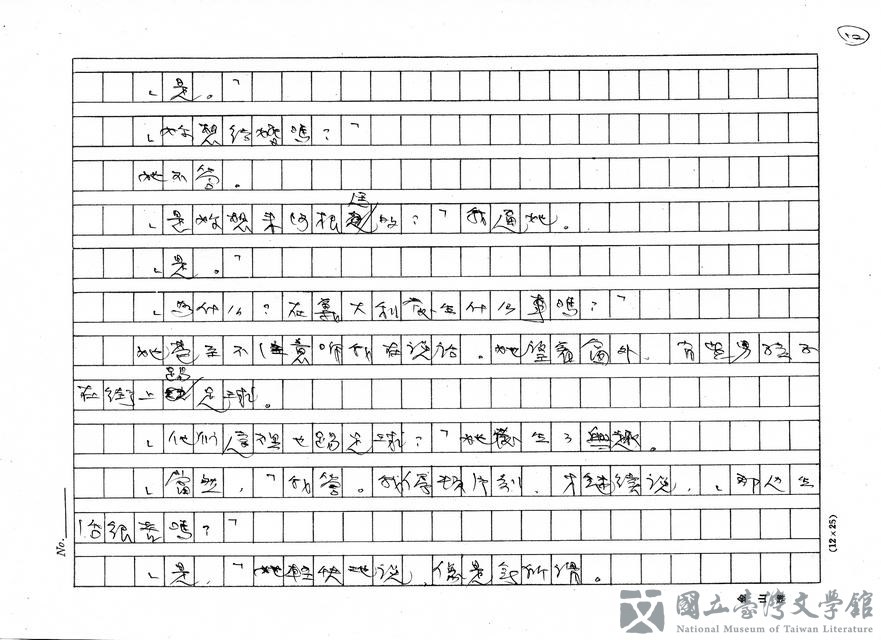 12
「是。」
「妳想結婚嗎？」
她不答。
「是妳想來阿根廷的？」我逼她。
「是。」
「為什麼？在義大利發生什麼事嗎？」
她甚至不注意聽我在說話。她望著窗外，有些男孩子
在街上踢足球。
「他們這裡也踢足球？」她發生了興趣。
「當然，」我答。我停頓片刻，才繼續說，「那人生
活很苦嗎？」
「是，」她輕快地說，像是無所謂。
No.
(12×25)
國立臺灣文學館
National Museum of Taiwan Literature